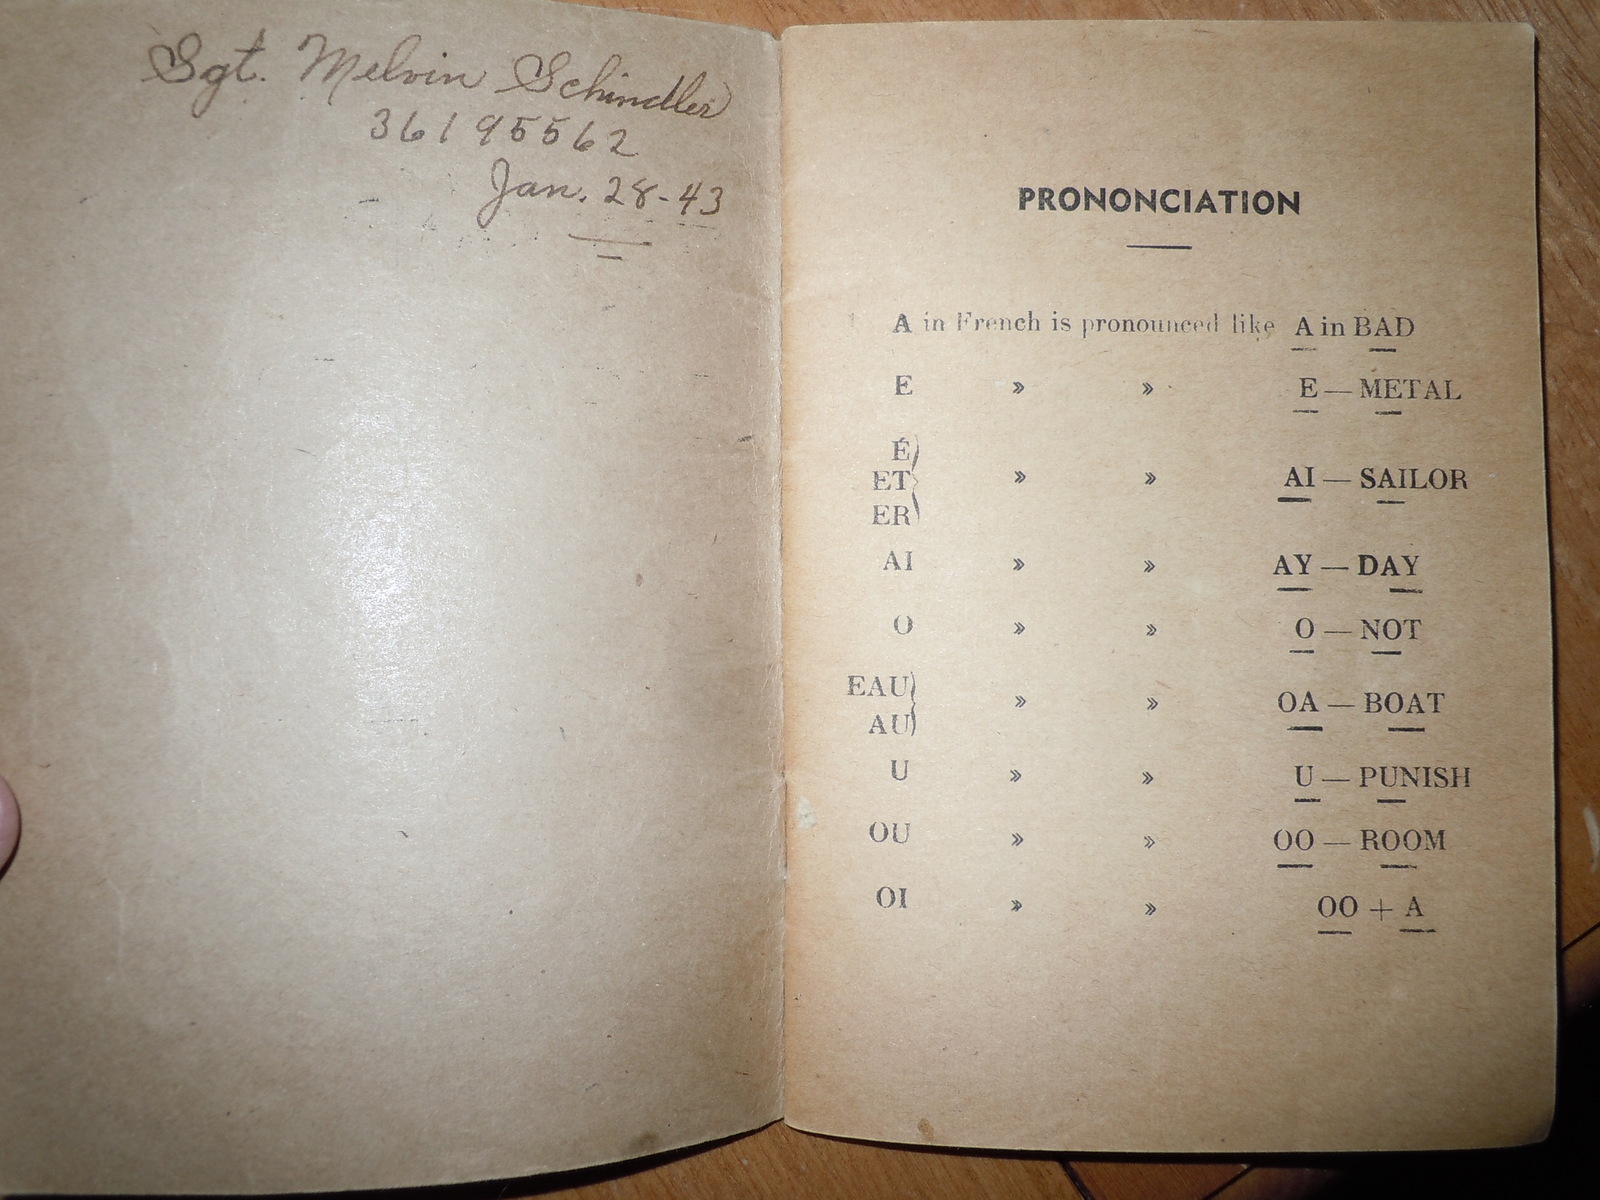 Sgt. Melvin Schindler
36195562
Jan. 28-43
PRONONCIATION
A in French is pronounced like A in BAD
E » » E — METAL
É
ET » » AI — SAILOR
ER
AI » » AY — DAY
O » » O — NOT
EAU
AU » » OA — BOAT
U » » U — PUNISH
OU » » OO — ROOM
OI » » OO + A